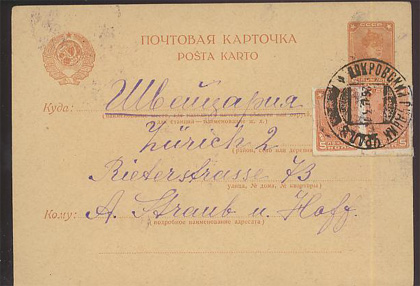 ПОЧТОВАЯ КАРТОЧКА
POŜTA KARTO
Куда: Швейцария
Zürich 2
Rieterstrasse 73
улица, № дома, № квартиры)
Кому: A. Straub u. Hoff.
(подробное наименование адресата)